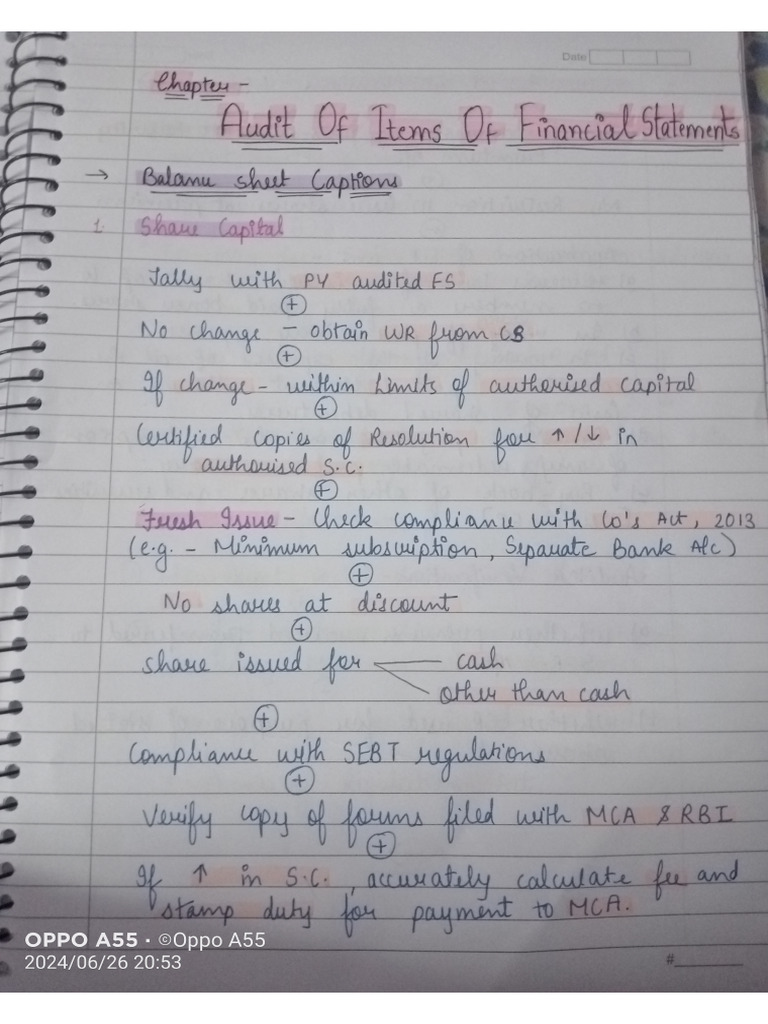 Date
Chapter -
Audit Of Items Of Financial Statements
→ Balance sheet Captions
1. Share Capital
Tally with PY audited FS
+
No change - obtain WR from CS
+
If change - within limits of authorised capital
+
Certified copies of Resolution for ↑/↓ in
authorised S.C.
+
Fresh Issue - Check compliance with Co's Act, 2013
(e.g. - Minimum subscription, Separate Bank A/c)
+
No shares at discount
+
share issued for cash
other than cash
+
Compliance with SEBI regulations
+
Verify copy of forms filed with MCA & RBI
+
If ↑ in S.C., accurately calculate fee and
stamp duty for payment to MCA.
OPPO A55 · ©Oppo A55
2024/06/26 20:53
#